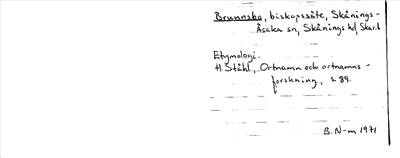 Brunnsbo, biskopssäte, Skånings-
Åsaka sn, Skånings hd, Skar.l
Etymologi.
H Ståhl, Ortnamn och ortnamns-
forskning, s. 89.
B. N-m 1971